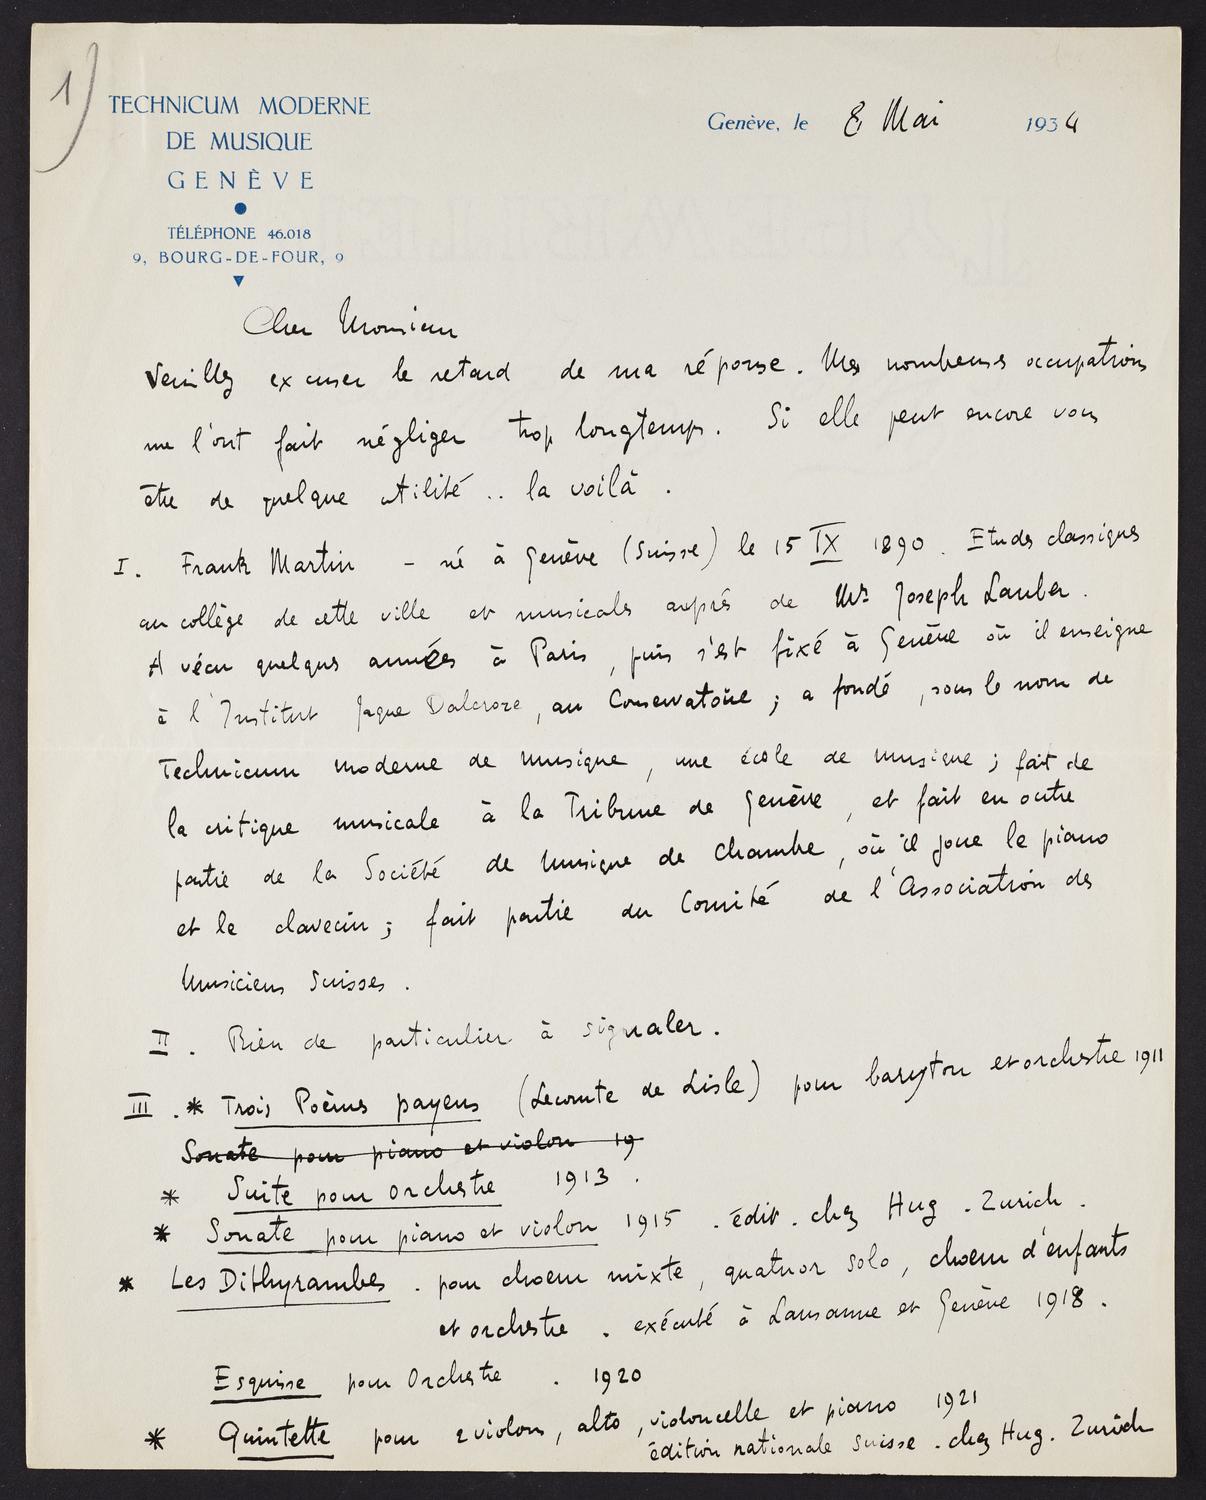 1)
TECHNICUM MODERNE
DE MUSIQUE
GENÈVE
TÉLÉPHONE 46.018
9, BOURG-DE-FOUR, 9
Genève, le 8 Mai 1934
Cher Monsieur
Veuillez excuser le retard de ma réponse. Mes nombreuses occupations
me l'ont fait négliger trop longtemps. Si elle peut encore vous
être de quelque utilité .. la voilà.
I. Frank Martin - né à Genève (Suisse) le 15 IX 1890. Etudes classiques
au collège de cette ville et musicales auprès de Mr Joseph Lauber.
A vécu quelques années à Paris, puis s'est fixé à Genève où il enseigne
à l'Institut Jaque Dalcroze, au Conservatoire; a fondé, sous le nom de
Technicum moderne de musique, une école de musique; fait de
la critique musicale à la Tribune de Genève, et fait en outre
partie de la Société de Musique de Chambre, où il joue le piano
et le clavecin; fait partie du Comité de l'Association des
Musiciens Suisses.
II. Rien de particulier à signaler.
III. * Trois Poèmes payens (Leconte de Lisle) pour baryton et orchestre 1911
Sonate pour piano et violon 19
* Suite pour Orchestre 1913.
* Sonate pour piano et violon 1915. édit. chez Hug. Zurich.
* Les Dithyrambes. pour choeur mixte, quatuor solo, choeur d'enfants
et orchestre. exécuté à Lausanne et Genève 1918.
Esquisse pour Orchestre. 1920
* Quintette pour 2 violons, alto, violoncelle et piano 1921
édition nationale suisse. chez Hug. Zurich